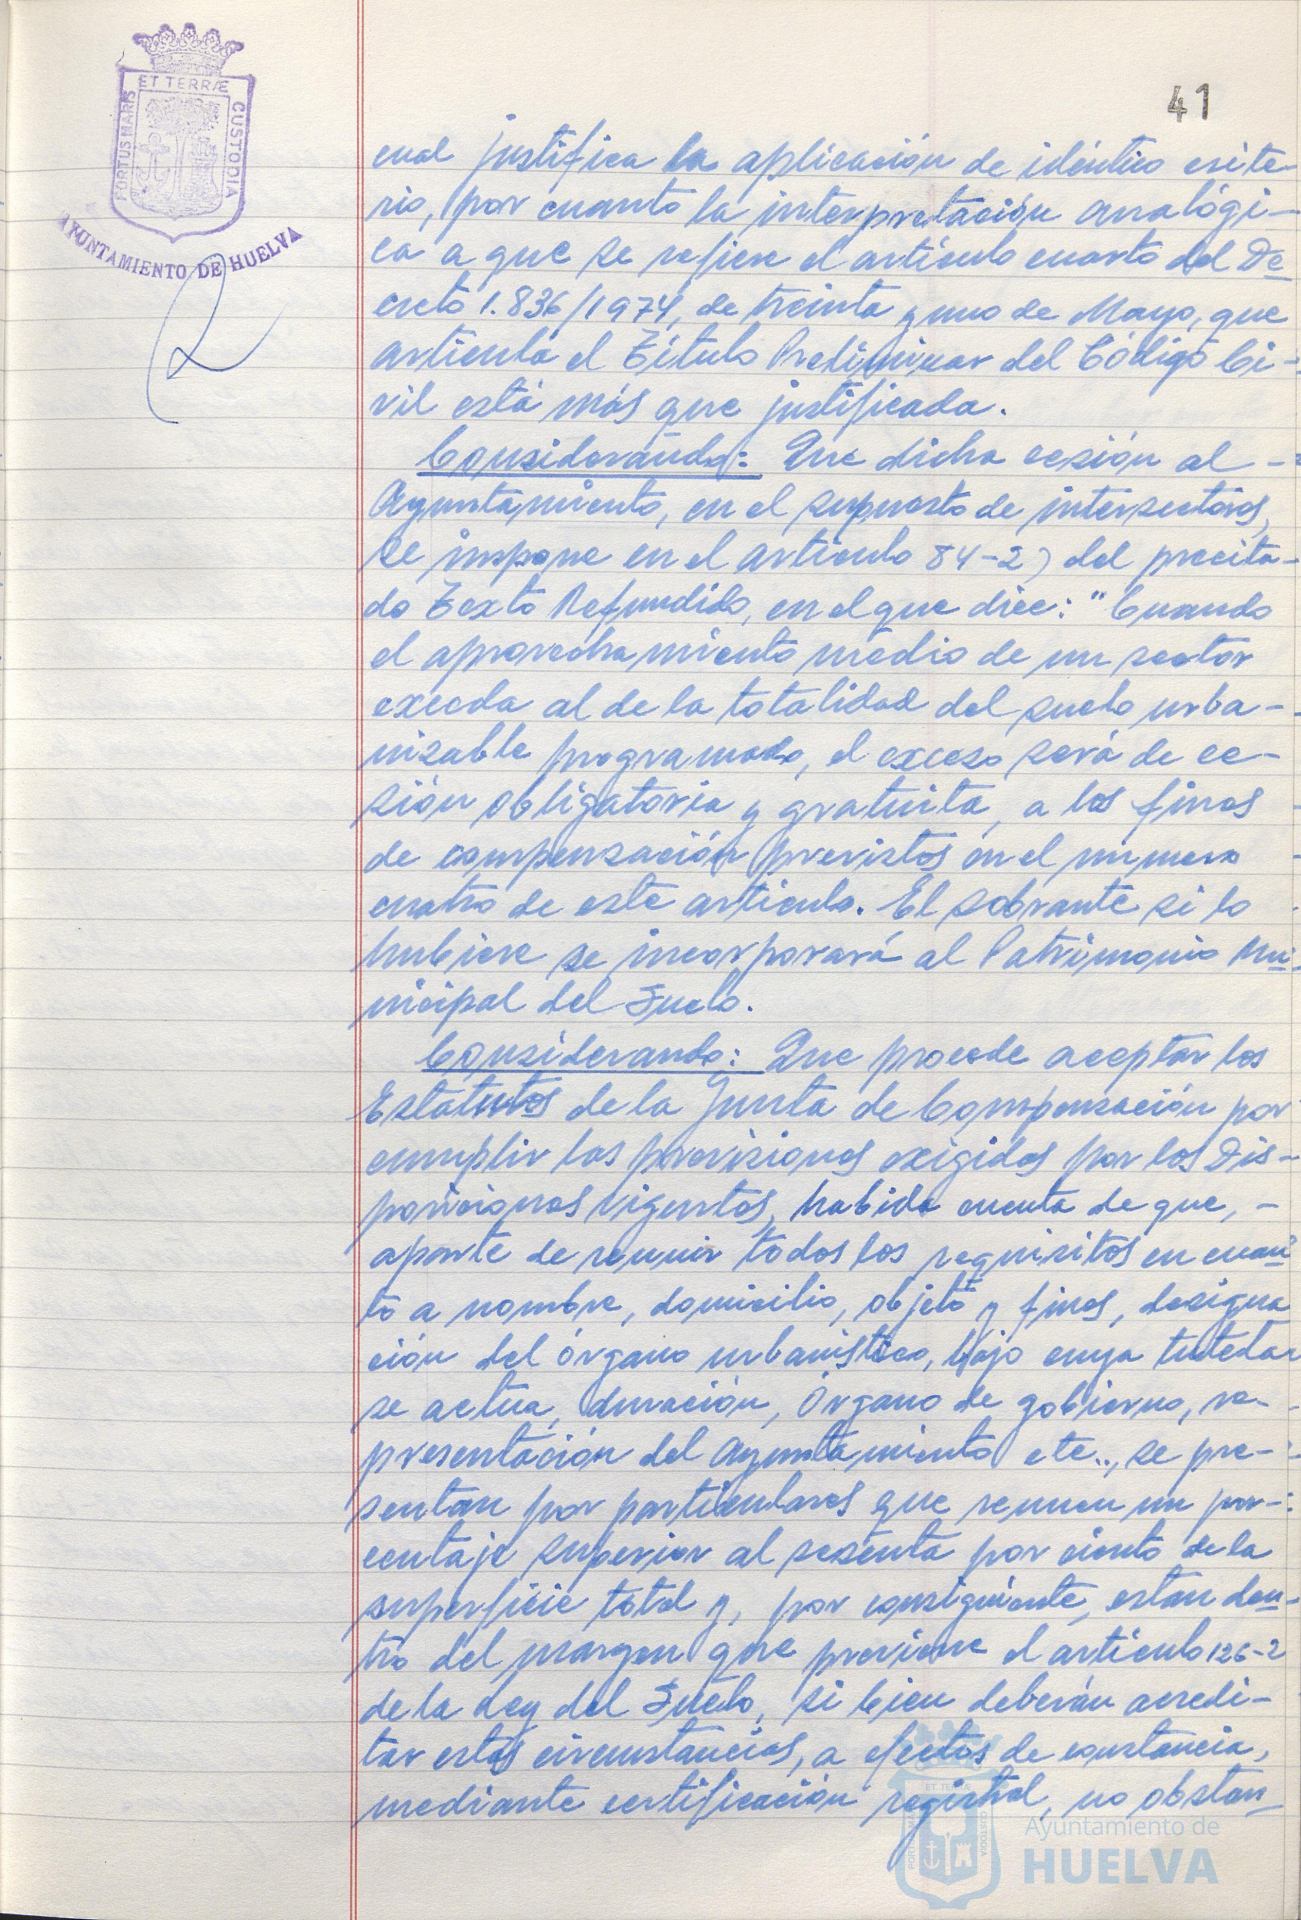 ET TERRÆ
PORTUS MARIS
CUSTODIA
AYUNTAMIENTO DE HUELVA
41
cual justifica la aplicación de idéntico crite-
rio, por cuanto la interpretación analógi-
ca a que se refiere el artículo cuarto del De-
creto 1.836/1974, de treinta y uno de Mayo, que
articula el Título Preliminar del Código Ci-
vil está más que justificada.
Considerando: Que dicha cesión al -
Ayuntamiento, en el supuesto de intersectores,
se impone en el artículo 84-2) del precita-
do Texto Refundido, en el que dice: "Cuando
el aprovechamiento medio de un sector
exceda al de la totalidad del suelo urba-
nizable programado, el exceso será de ce-
sión obligatoria y gratuita, a los fines
de compensación previstos en el número
cuatro de este artículo. El sobrante si lo
hubiere se incorporará al Patrimonio Mu-
nicipal del Suelo.
Considerando: Que procede aceptar los
Estatutos de la Junta de Compensación por
cumplir las previsiones exigidas por los Dis-
posiciones vigentes, habida cuenta de que, -
aparte de reunir todos los requisitos en cuan-
to a nombre, domicilio, objeto y fines, designa
ción del órgano urbanístico, bajo cuya tutela
se actua, duración, Órgano de gobierno, re-
presentación del Ayuntamiento etc.., se pre-
sentan por particulares que reunen un por-
centaje superior al sesenta por ciento de la
superficie total y, por consiguiente, estan den-
tro del margen que previene el artículo 126-2
de la Ley del Suelo, si bien deberán acredi-
tar estas circunstancias, a efectos de constancia,
mediante certificación registral, no obstan-
ET TERRÆ
CUSTODIA
Ayuntamiento de
HUELVA